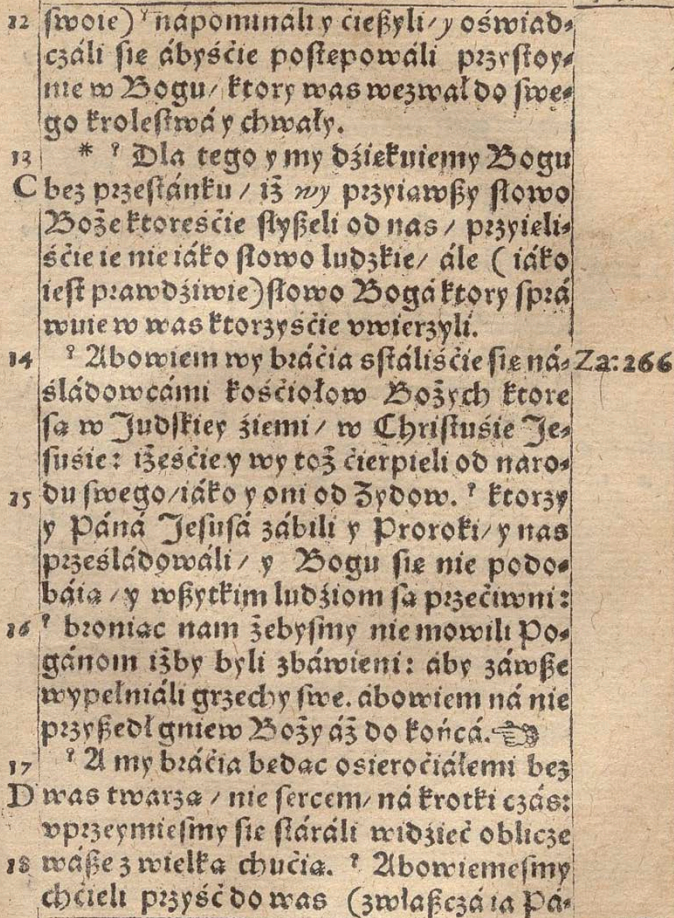 12 swoie) ? nápomináli y ćießyli / y oświad⸗
czáli sie ábyśćie postepowáli przystoy⸗
nie w Bogu / ktory was wezwał do swe⸗
go krolestwá y chwały.
13 * ? Dla tego y my dźiekuiemy Bogu
C bez przestánku / iż wy przyiawßy słowo
Boże ktoreśćie słyßeli od nas / przyieli⸗
śćie ie nie iáko słowo ludzkie / ále ( iáko
iest prawdźiwie) słowo Bogá ktory sprá
wuie w was ktorzyśćie vwierzyli.
14 ? Abowiem wy bráćia sstáliśćie sie ná⸗ Za: 266
śládowcámi kośćiołow Bożych ktore
sa w Judskiey źiemi / w Christuśie Je⸗
susie: iżeśćie y wy toż ćierpieli od naro⸗
15 du swego / iáko y oni od Żydow. ? ktorzy
y Páná Jesusá zábili y Proroki / y nas
prześládowáli / y Bogu sie nie podo⸗
báia / y wßytkim ludźiom sa przećiwni:
16 ? broniac nam żebysmy nie mowili Po⸗
gánom iżby byli zbáwieni: áby záwße
wypełniáli grzechy swe. ábowiem ná nie
przyßedł gniew Boży áż do końcá. ☜
17 ? A my bráćia bedac osieroćiáłemi bez
D was twarza / nie sercem / ná krotki czás:
vprzeymiesmy sie stáráli widźieć oblicze
18 wáße z wielka chućia. ? Abowiemesmy
chćieli przyść do was (zwłaßczá ia Pá⸗